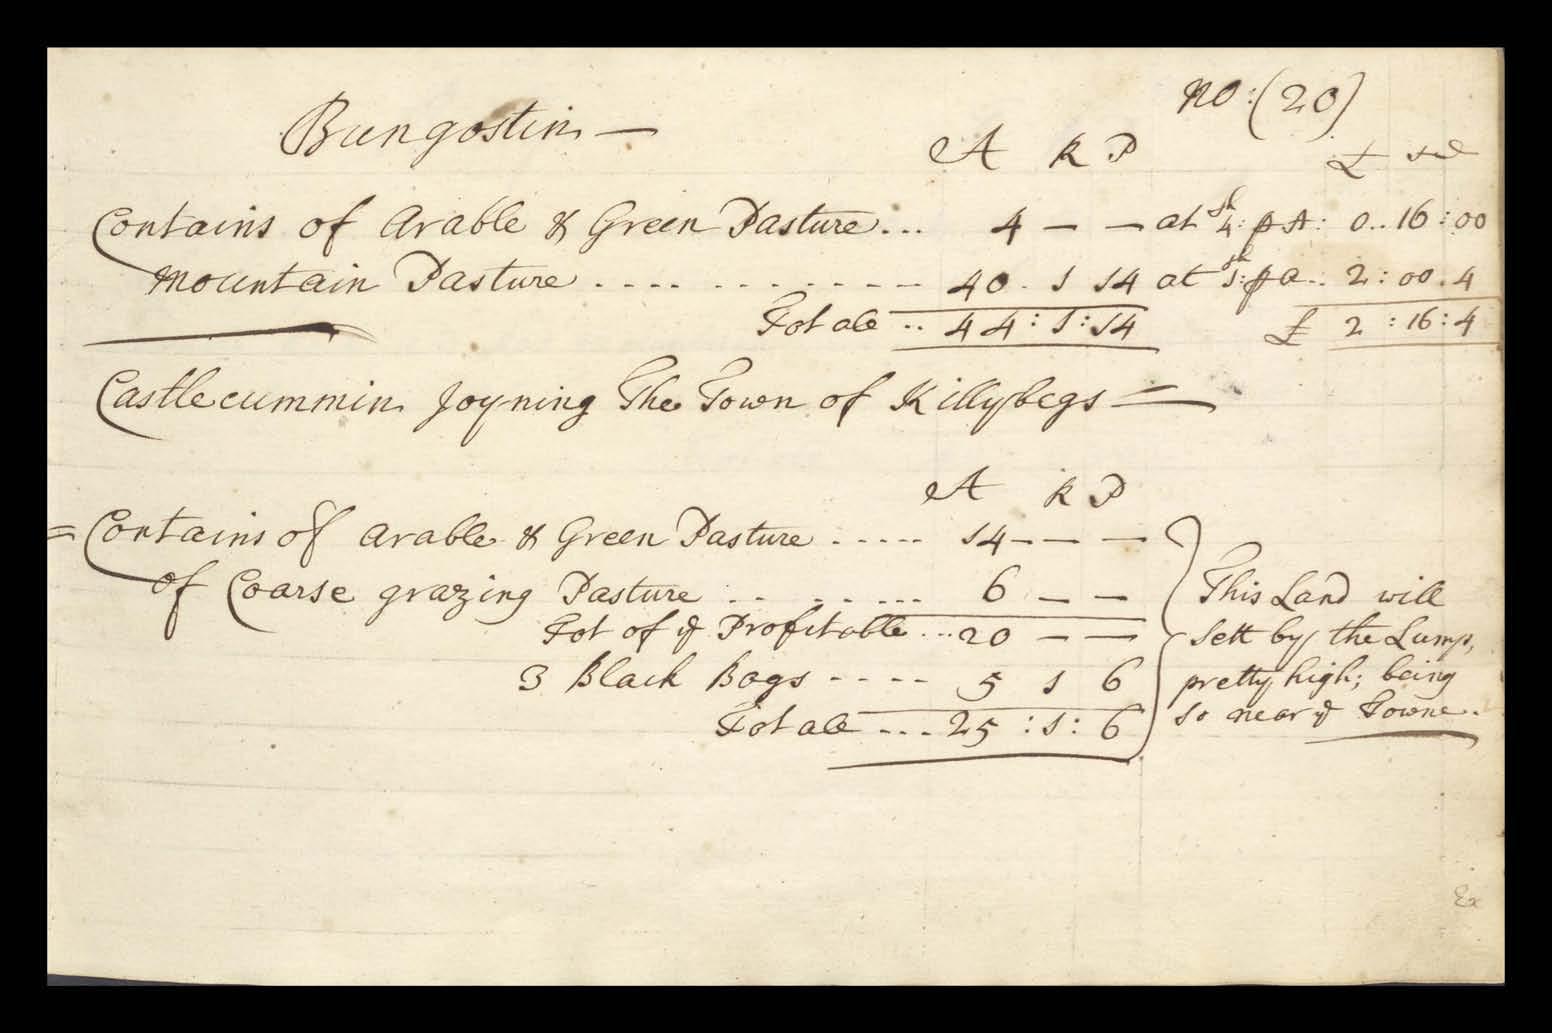 No: (20)
Bungostin —
A R P £ s d
Contains of Arable & Green Pasture... 4 — — at 4:sh p A: 0..16:00
Mountain Pasture .......... 40. 1 14 at 1:sh p a.. 2:00.4
Totale .. 44:1:14 £ 2:16:4
Castlecummin Joyning The Town of Killybegs =
A R P
= Contains of Arable & Green Pasture ..... 14 — — —
of Coarse grazing Pasture ........ 6 — —
Tot of ye Profitable ... 20 — —
3 Black Bogs ---- 5 1 6
Totale --- 25:1:6
This Land will
sett by the Lump,
pretty high; being
so near ye Towne.
Ex